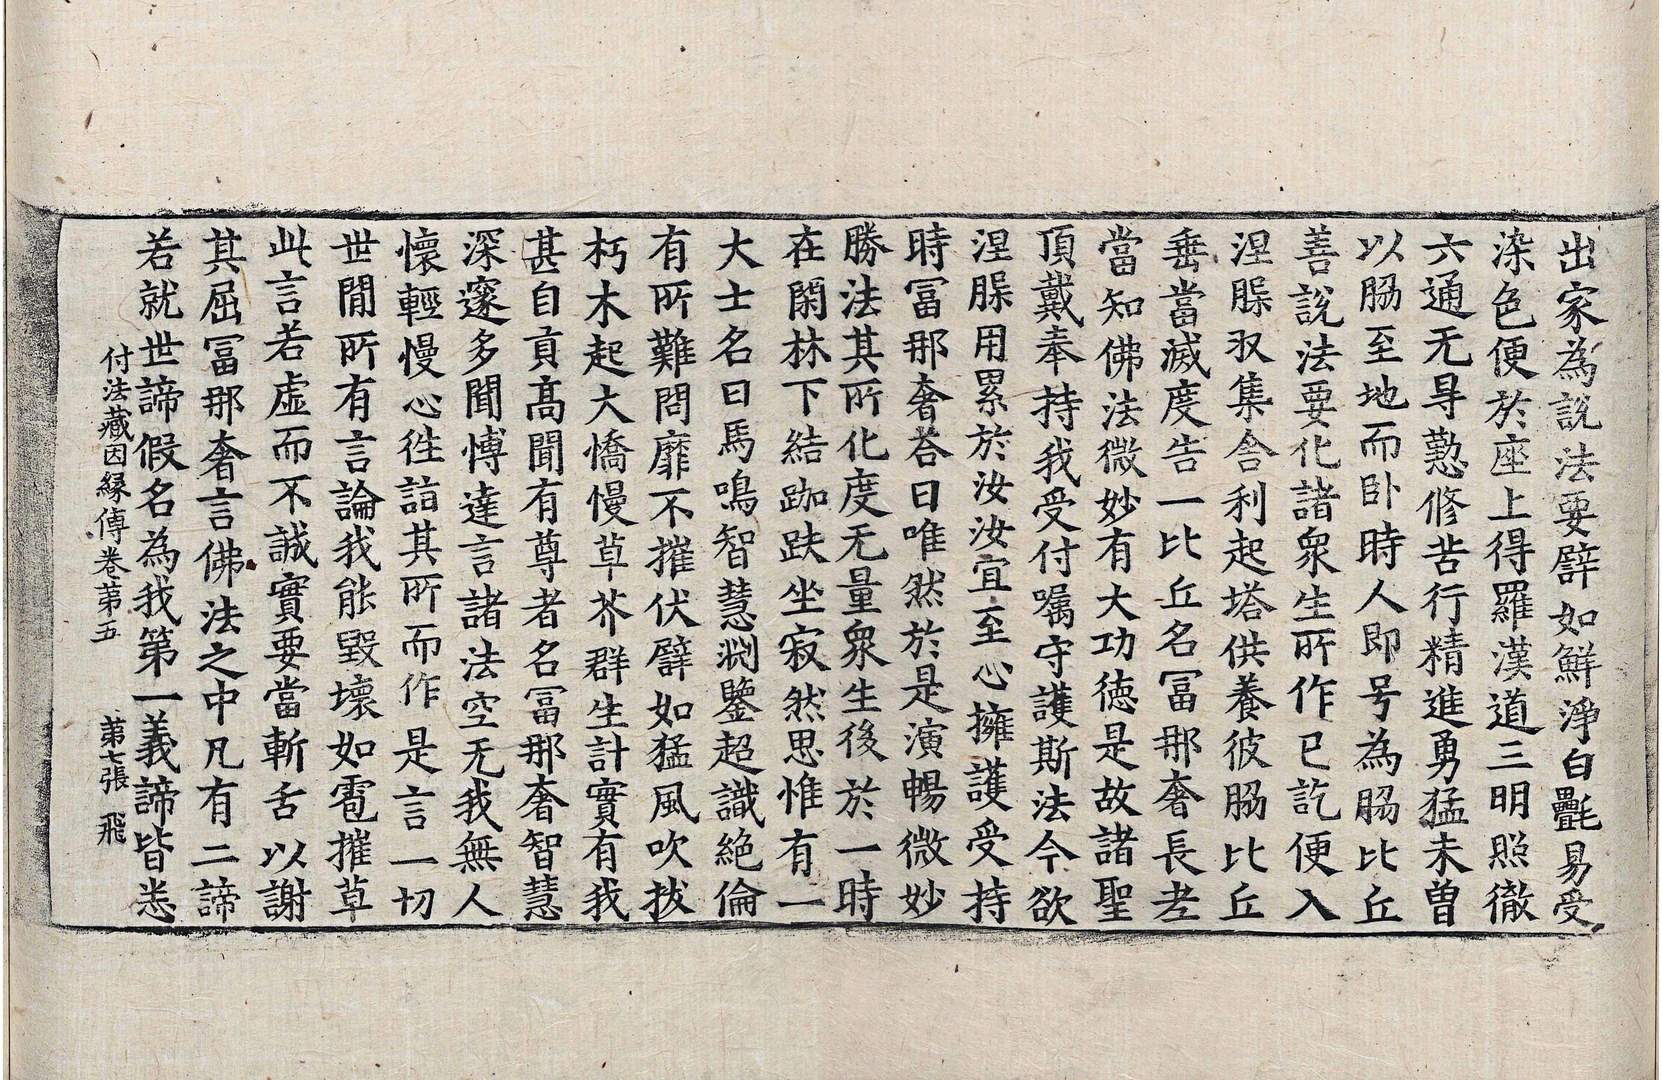 出家為說法要譬如鮮淨白㲲易受
染色便於座上得羅漢道三明照徹
六通无㝵懃修苦行精進勇猛未曾
以脇至地而卧時人即号為脇比丘
善說法要化諸衆生所作已訖便入
涅槃収集舍利起塔供養彼脇比丘
垂當滅度告一比丘名冨那奢長老
當知佛法微妙有大功德是故諸聖
頂戴奉持我受付囑守護斯法今欲
涅槃用累於汝汝宜至心擁護受持
時冨那奢荅曰唯然於是演暢微妙
勝法其所化度无量衆生後於一時
在閑林下結跏趺坐寂然思惟有一
大士名曰馬鳴智慧渕鑒超識絶倫
有所難問靡不摧伏譬如猛風吹拔
朽木起大憍慢草芥群生計實有我
甚自貢髙聞有尊者名冨那奢智慧
深邃多聞愽達言諸法空无我無人
懷輕慢心徃詣其所而作是言一切
世閒所有言論我能毀壞如雹摧草
此言若虛而不誠實要當斬舌以謝
其屈冨那奢言佛法之中凡有二諦
若就世諦假名為我第一義諦皆悉
付法藏因緣傳卷第五 第七張 飛